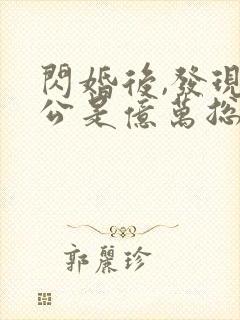 閃婚後,發現
公是億萬總
郭麗珍